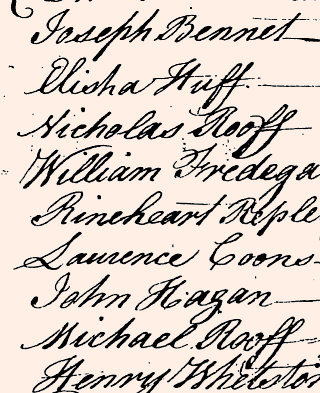 Joseph Bennet
Elisha Huff
Nicholas Rooff
William Fredega
Rineheart Reple
Laurence Coons
John Hagan
Michael Rooff
Henry Whetston